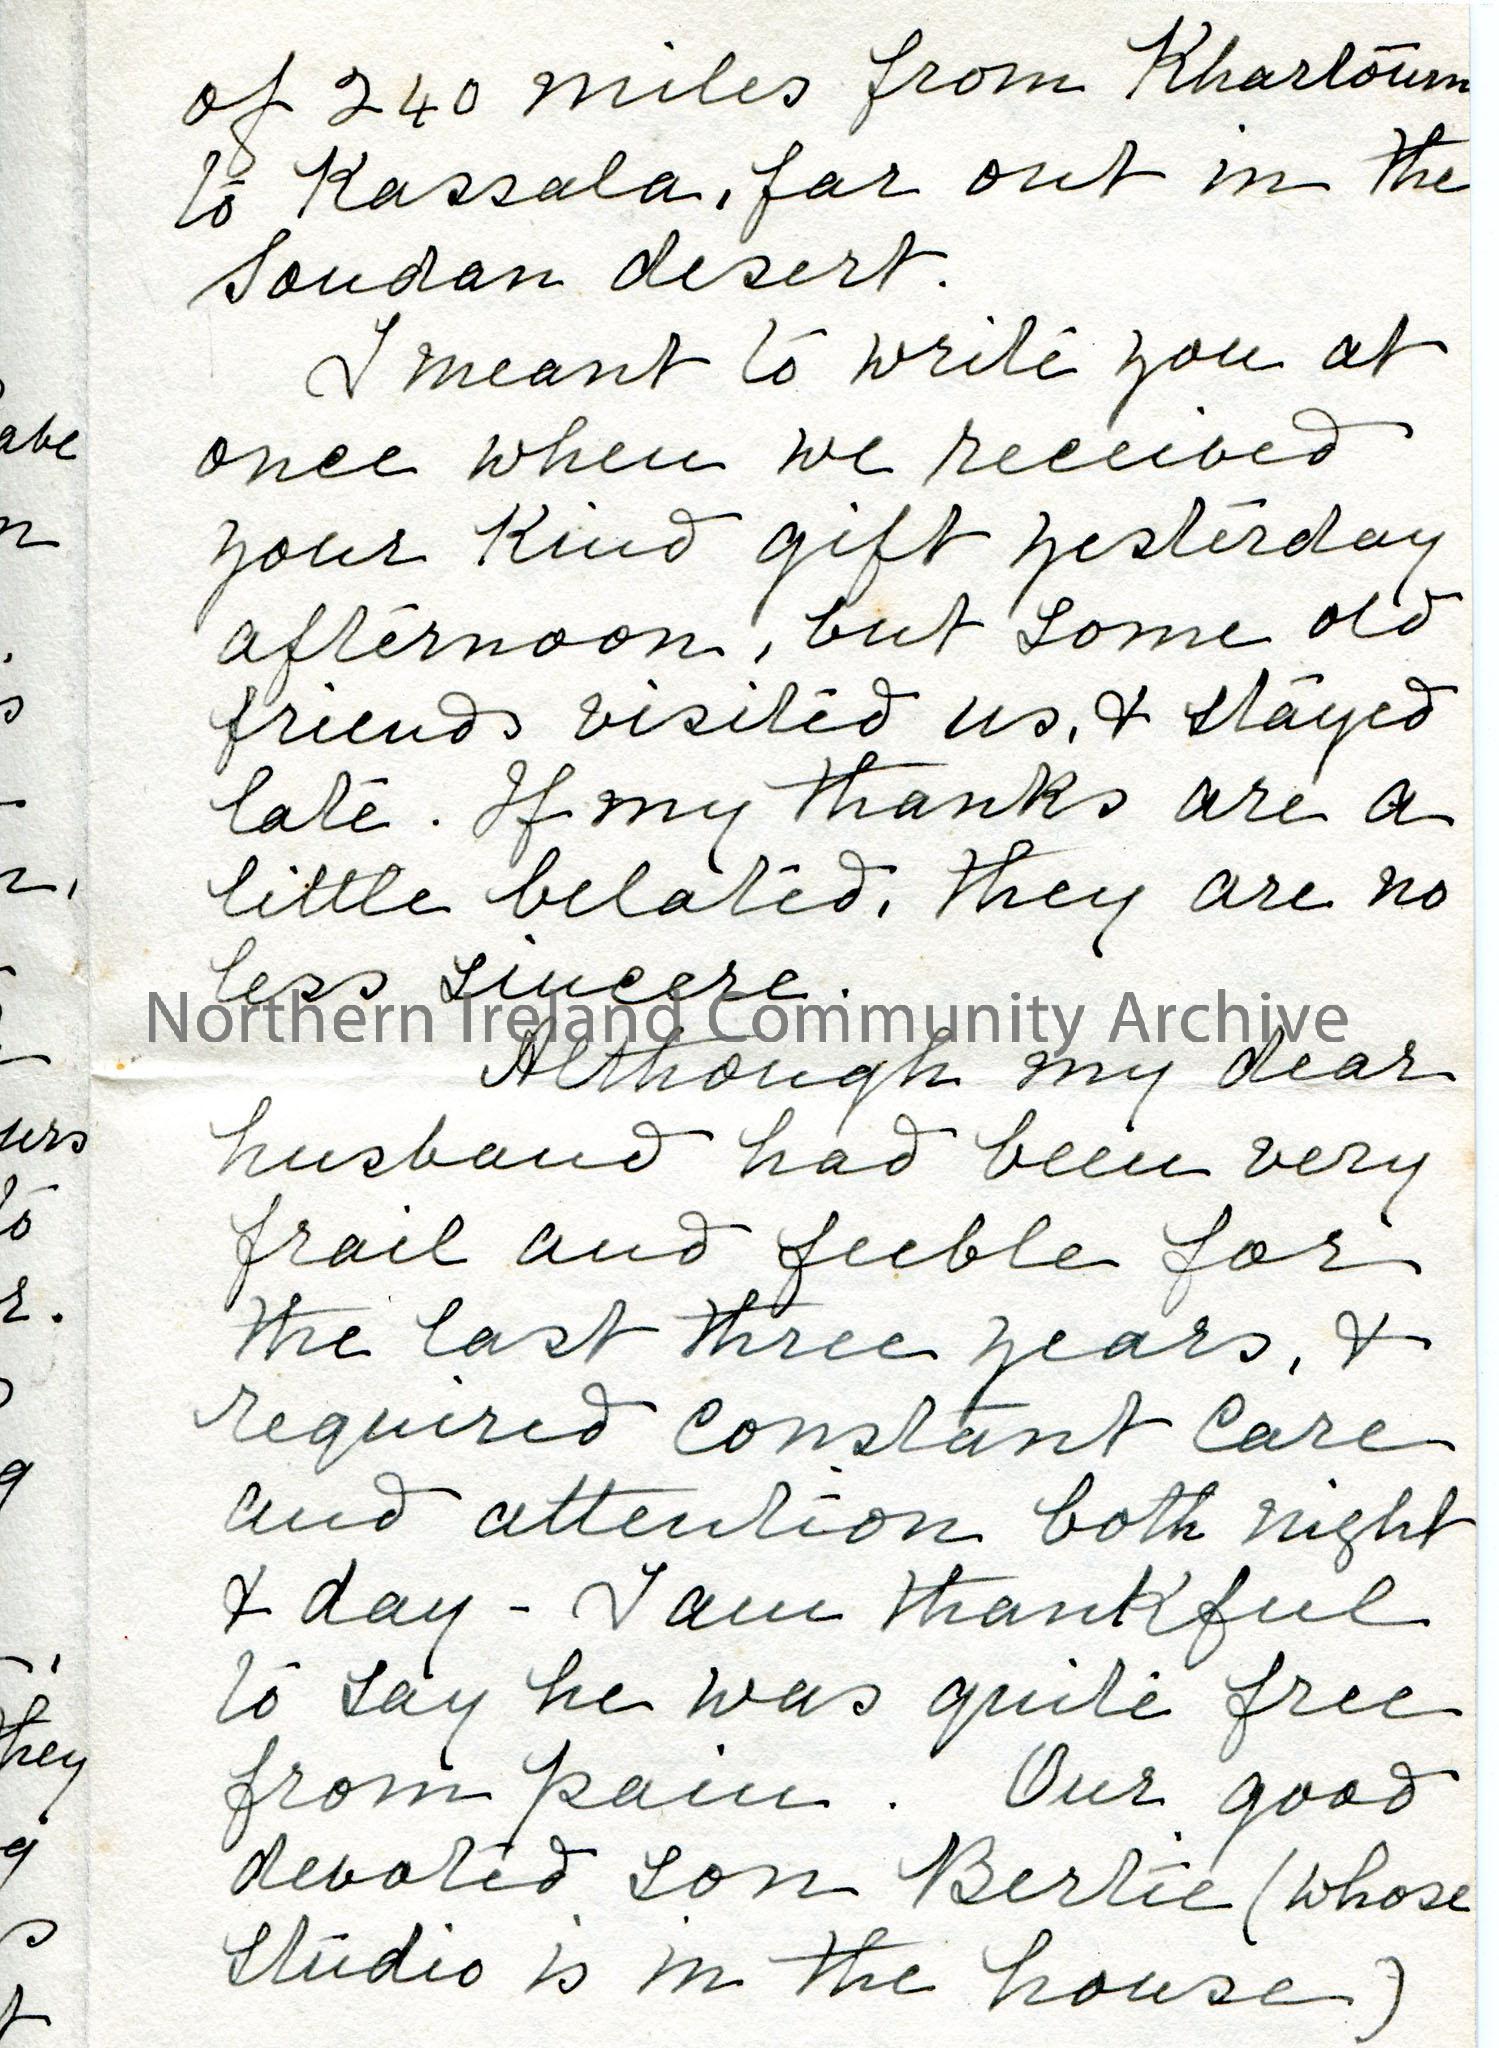 of 240 miles from Khartoum
to Kassala, far out in the
Soudan desert.
I meant to write you at
once when we received
your kind gift yesterday
afternoon, but some old
friends visited us, & stayed
late. If my thanks are a
little belated, they are no
less sincere.
Northern Ireland Community Archive
Although my dear
husband had been very
frail and feeble for
the last three years, &
required constant care
and attention both night
& day - I am thankful
to say he was quite free
from pain. Our good
devoted son Bertie (whose
studio is in the house)